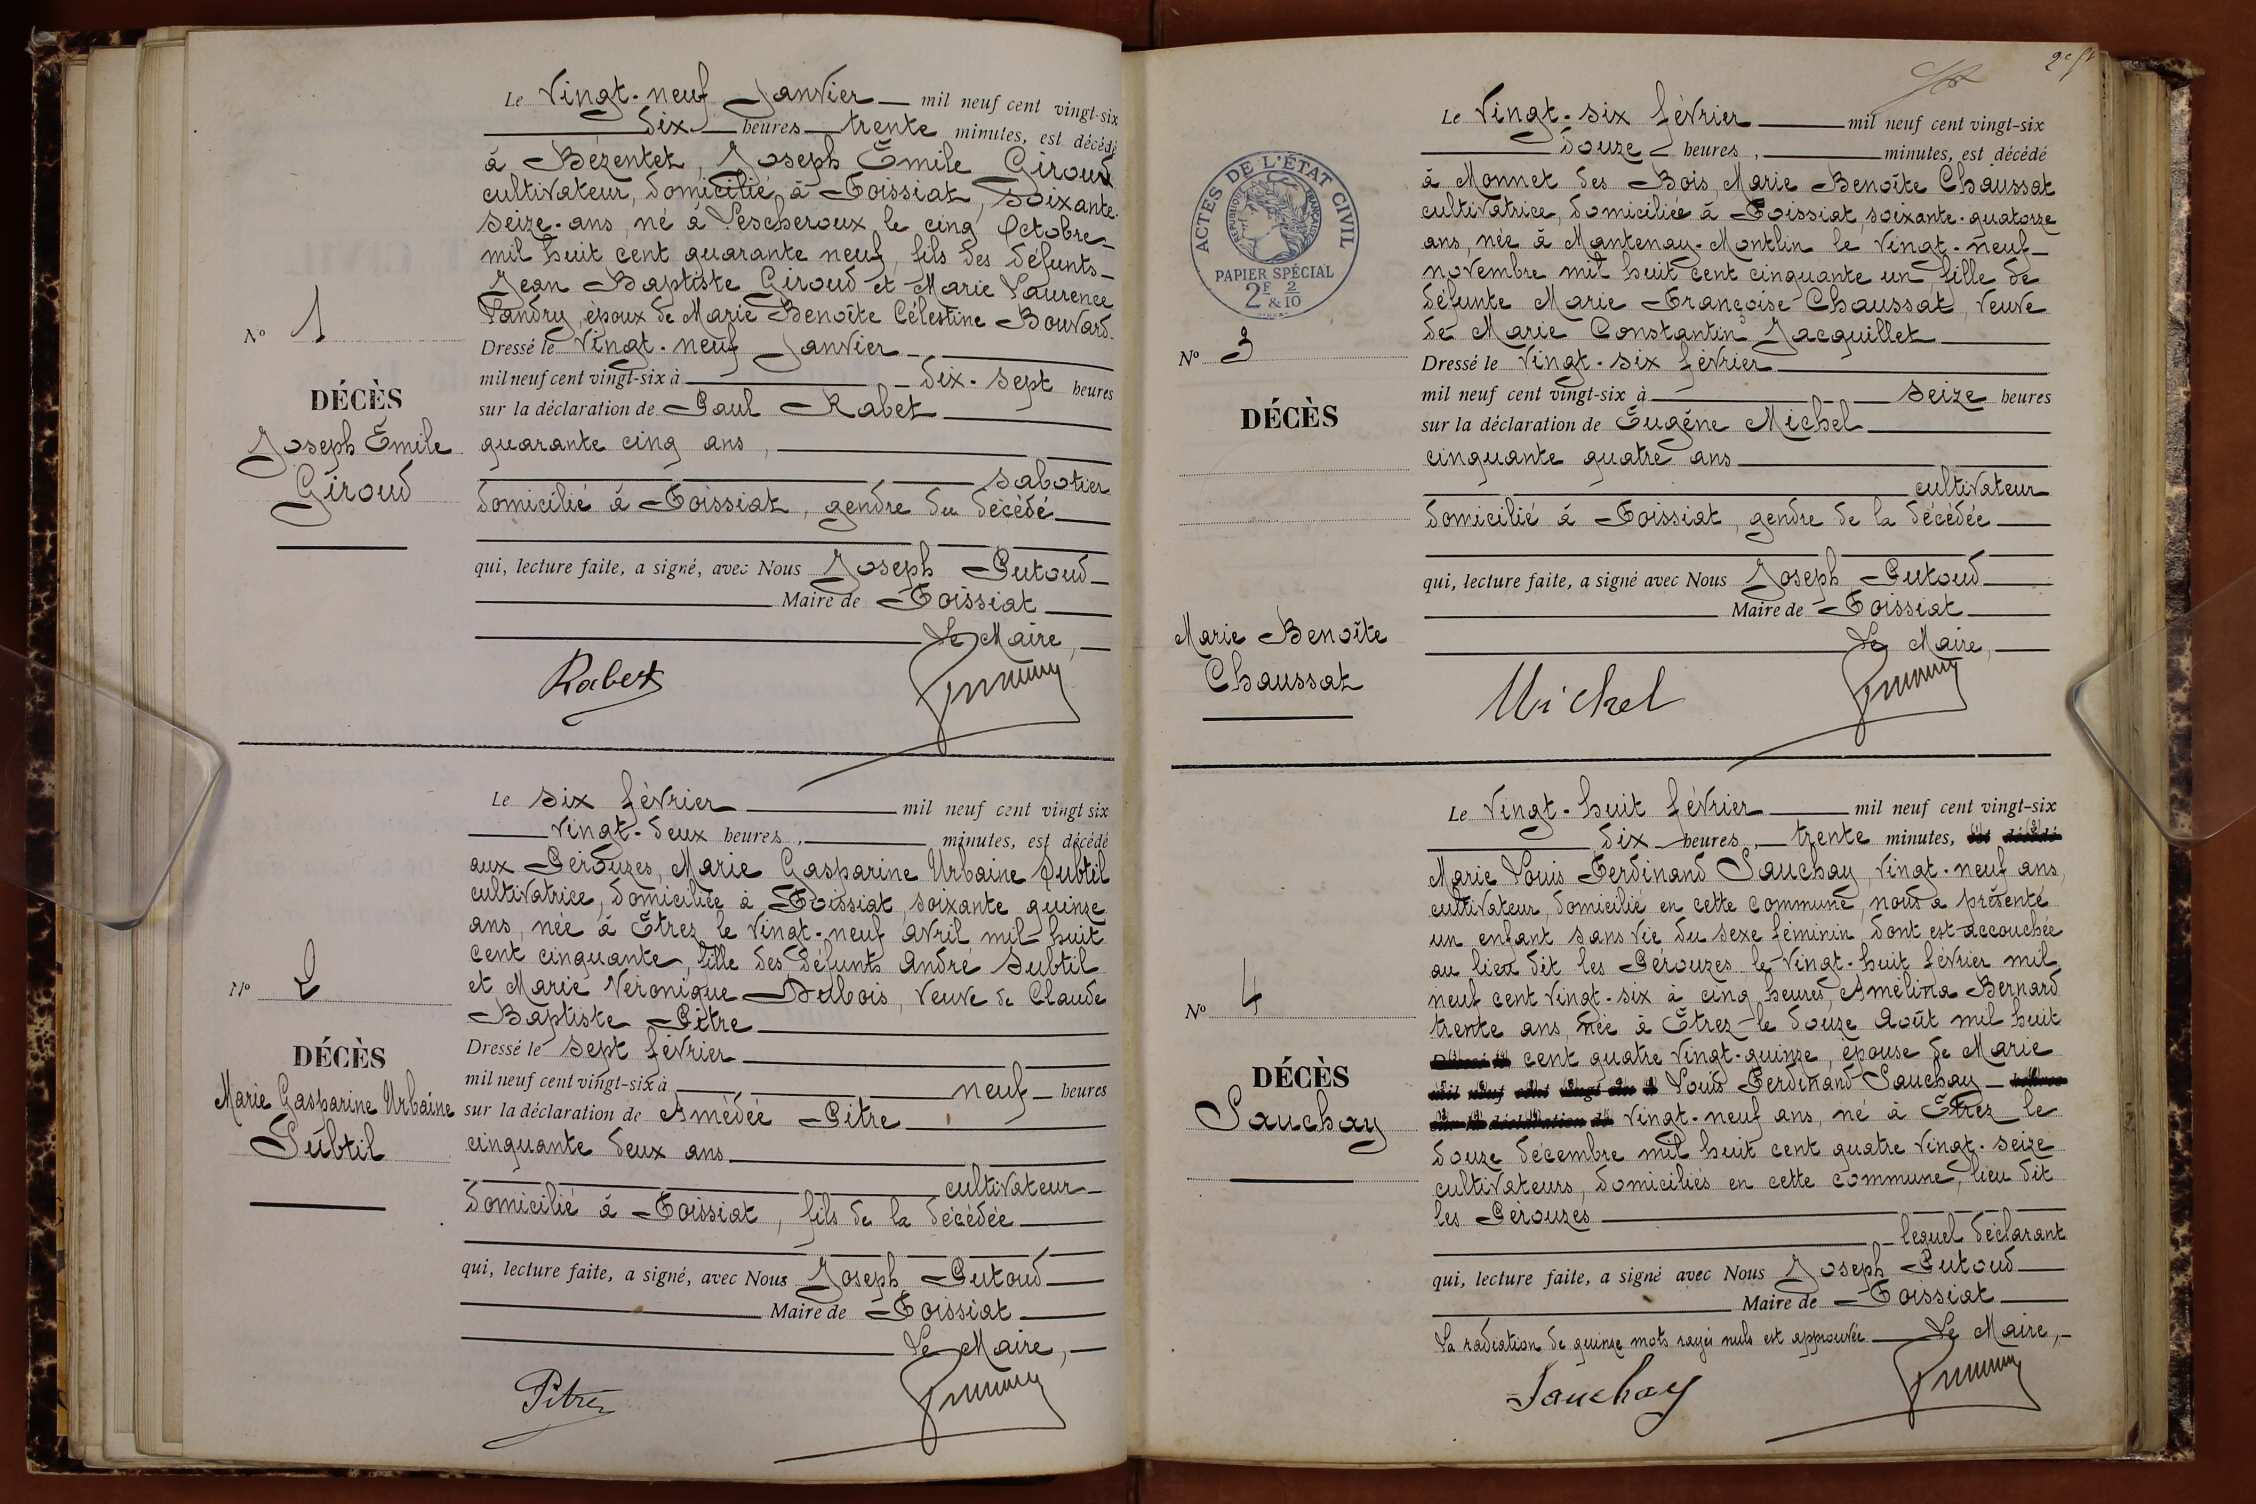 Le vingt-neuf Janvier mil neuf cent vingt-six
dix heures trente minutes, est décédé
à Bézentet, Joseph Émile Giroud
cultivateur, domicilié à Foissiat, soixante-
seize ans, né à Lescheroux le cinq Octobre
mil huit cent quarante neuf, fils des défunts
Jean Baptiste Giroud et Marie Laurence
Landry, époux de Marie Benoîte Célestine Bouvard.
Nº 1
Dressé le vingt-neuf Janvier
mil neuf cent vingt-six à dix-sept heures
DÉCÈS
sur la déclaration de Paul Rabet
Joseph Émile
Giroud
quarante cinq ans,
sabotier
domicilié à Foissiat, gendre du décédé
qui, lecture faite, a signé, avec Nous Joseph Putoud
Maire de Foissiat
Le Maire,
Rabet
Le six février mil neuf cent vingt six
vingt-deux heures, minutes, est décédé
aux Pérouzes, Marie Gasparine Urbaine Subtil
cultivatrice, domiciliée à Foissiat, soixante quinze
ans, née à Étrez le vingt-neuf avril mil huit
cent cinquante, fille des défunts André Subtil
et Marie Véronique Dubois, veuve de Claude
Baptiste Pitre
Nº 2
Dressé le sept février
DÉCÈS
mil neuf cent vingt-six à neuf heures
Marie Gasparine Urbaine
Subtil
sur la déclaration de Amédée Pitre
cinquante deux ans
cultivateur
domicilié à Foissiat, fils de la décédée
qui, lecture faite, a signé, avec Nous Joseph Putoud
Maire de Foissiat
Le Maire,
Pitre
Le vingt-six février mil neuf cent vingt-six
douze heures, minutes, est décédé
à Monnet des Bois, Marie Benoîte Chaussat
cultivatrice, domiciliée à Foissiat, soixante-quatorze
ans, née à Mantenay-Montlin le vingt-neuf
novembre mil huit cent cinquante un, fille de
défunte Marie Françoise Chaussat, veuve
de Marie Constantin Jacquillet
ACTES DE L'ÉTAT CIVIL
RÉPUBLIQUE FRANÇAISE
PAPIER SPÉCIAL
2F 2/10
&
Nº 3
Dressé le vingt-six février
mil neuf cent vingt-six à seize heures
DÉCÈS
sur la déclaration de Eugène Michel
cinquante quatre ans
cultivateur
domicilié à Foissiat, gendre de la décédée
qui, lecture faite, a signé avec Nous Joseph Putoud
Maire de Foissiat
Marie Benoîte
Chaussat
Le Maire,
Michel
Le vingt-huit février mil neuf cent vingt-six
dix heures, trente minutes,
Marie Louis Ferdinand Sauchay, vingt-neuf ans,
cultivateur, domicilié en cette commune, nous a présenté
un enfant sans vie du sexe féminin, dont est accouchée
au lieu dit les Pérouzes le vingt-huit février mil
neuf cent vingt-six à cinq heures, Amélina Bernard
trente ans, née à Étrez le douze Août mil huit
cent quatre vingt-quinze, épouse de Marie
Louis Ferdinand Sauchay
vingt-neuf ans, né à Étrez le
douze décembre mil huit cent quatre vingt-seize
cultivateurs, domiciliés en cette commune, lieu dit
les Pérouzes
Nº 4
DÉCÈS
Sauchay
lequel déclarant
qui, lecture faite, a signé avec Nous Joseph Putoud
Maire de Foissiat
La radiation de quinze mots rayés nuls est approuvée Le Maire,
Sauchay